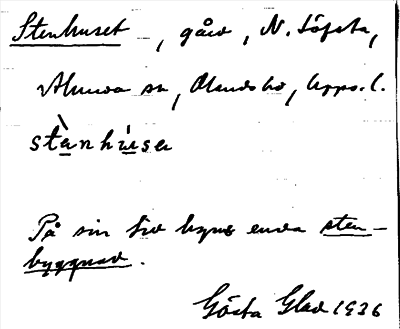 Stenhuset, gård, N. Löfsta,
Alunda sn, Olands hd, Upps. l.
stènhúsɘ
På sin tid byns enda sten-
byggnad.
Gösta Glad 1926